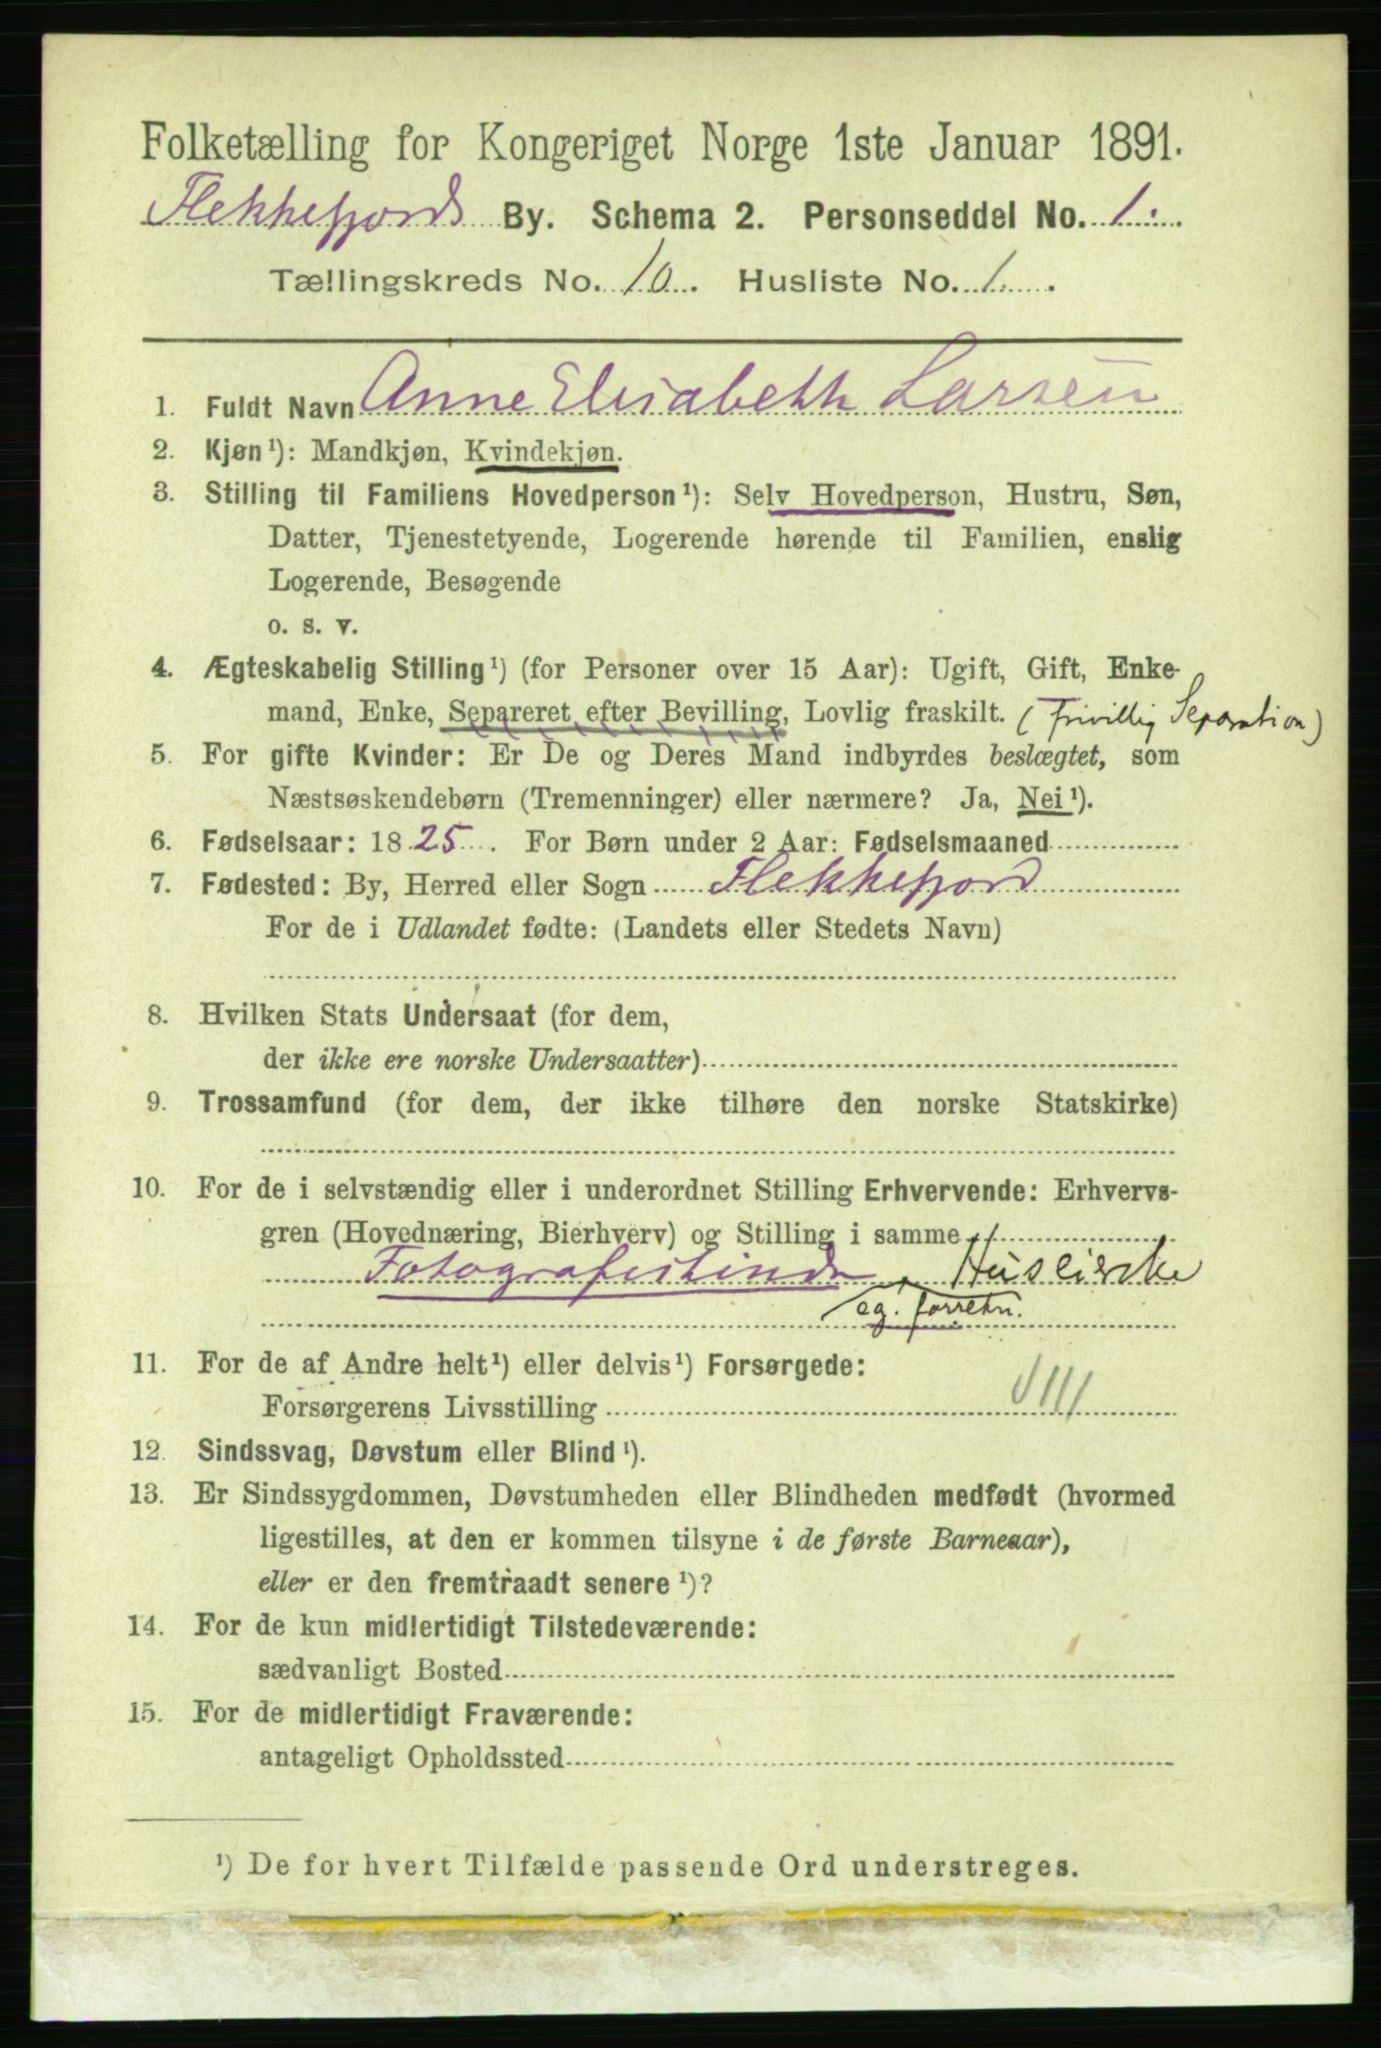 Folketælling for Kongeriget Norge 1ste Januar 1891.
Flekkefjords By. Schema 2. Personseddel No. 1.
Tællingskreds No. 10. Husliste No. 1.
1. Fuldt Navn Anne Elisabeth Larsen
2. Kjøn¹): Mandkjøn, Kvindekjøn.
3. Stilling til Familiens Hovedperson¹): Selv Hovedperson, Hustru, Søn,
Datter, Tjenestetyende, Logerende hørende til Familien, enslig
Logerende, Besøgende
o. s. v.
4. Ægteskabelig Stilling¹) (for Personer over 15 Aar): Ugift, Gift, Enke-
mand, Enke, Separeret efter Bevilling, Lovlig fraskilt. (Frivillig Separation)
5. For gifte Kvinder: Er De og Deres Mand indbyrdes beslægtet, som
Næstsøskendebørn (Tremenninger) eller nærmere? Ja, Nei¹).
6. Fødselsaar: 1825. For Børn under 2 Aar: Fødselsmaaned
7. Fødested: By, Herred eller Sogn Flekkefjord
For de i Udlandet fødte: (Landets eller Stedets Navn)
8. Hvilken Stats Undersaat (for dem,
der ikke ere norske Undersaatter)
9. Trossamfund (for dem, der ikke tilhøre den norske Statskirke)
10. For de i selvstændig eller i underordnet Stilling Erhvervende: Erhvervs-
gren (Hovednæring, Bierhverv) og Stilling i samme
Fotografistinde, Huseierske
eg. forretn.
11. For de af Andre helt¹) eller delvis¹) Forsørgede:
Forsørgerens Livsstilling VIII
12. Sindssvag, Døvstum eller Blind¹).
13. Er Sindssygdommen, Døvstumheden eller Blindheden medfødt (hvormed
ligestilles, at den er kommen tilsyne i de første Barneaar),
eller er den fremtraadt senere¹)?
14. For de kun midlertidigt Tilstedeværende:
sædvanligt Bosted
15. For de midlertidigt Fraværende:
antageligt Opholdssted
¹) De for hvert Tilfælde passende Ord understreges.